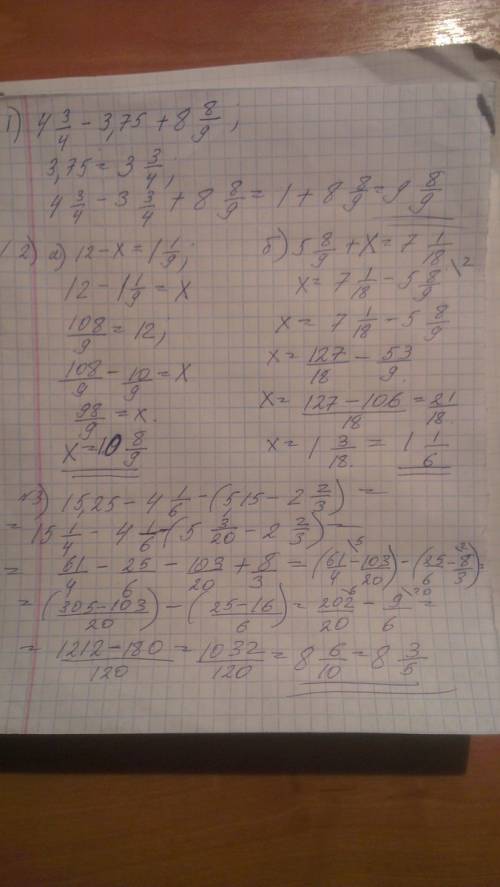 1) 4 3/4 - 3,75 + 8 8/9;
3,75 = 3 3/4;
4 3/4 - 3 3/4 + 8 8/9 = 1 + 8 8/9 = 9 8/9
2) а) 12 - x = 1 1/9;
12 - 1 1/9 = x
108/9 = 12;
108/9 - 10/9 = x
98/9 = x.
x = 10 8/9
б) 5 8/9 + x = 7 1/18
x = 7 1/18 - 5 8/9 \2
x = 7 1/18 - 5 8/9
x = 127/18 - 53/9.
x = (127 - 106)/18 = 21/18.
x = 1 3/18. = 1 1/6
№3) 15,25 - 4 1/6 - (5,15 - 2 2/3) =
= 15 1/4 - 4 1/6 - (5 3/20 - 2 2/3) =
= 61/4 - 25/6 - 103/20 + 8/3 = (61/4 \5 - 103/20) - (25/6 - 8/3 \2) =
= (305 - 103)/20 - (25 - 16)/6 = 202/20 \6 - 9/6 \20 =
= (1212 - 180)/120 = 1032/120 = 8 6/10 = 8 3/5